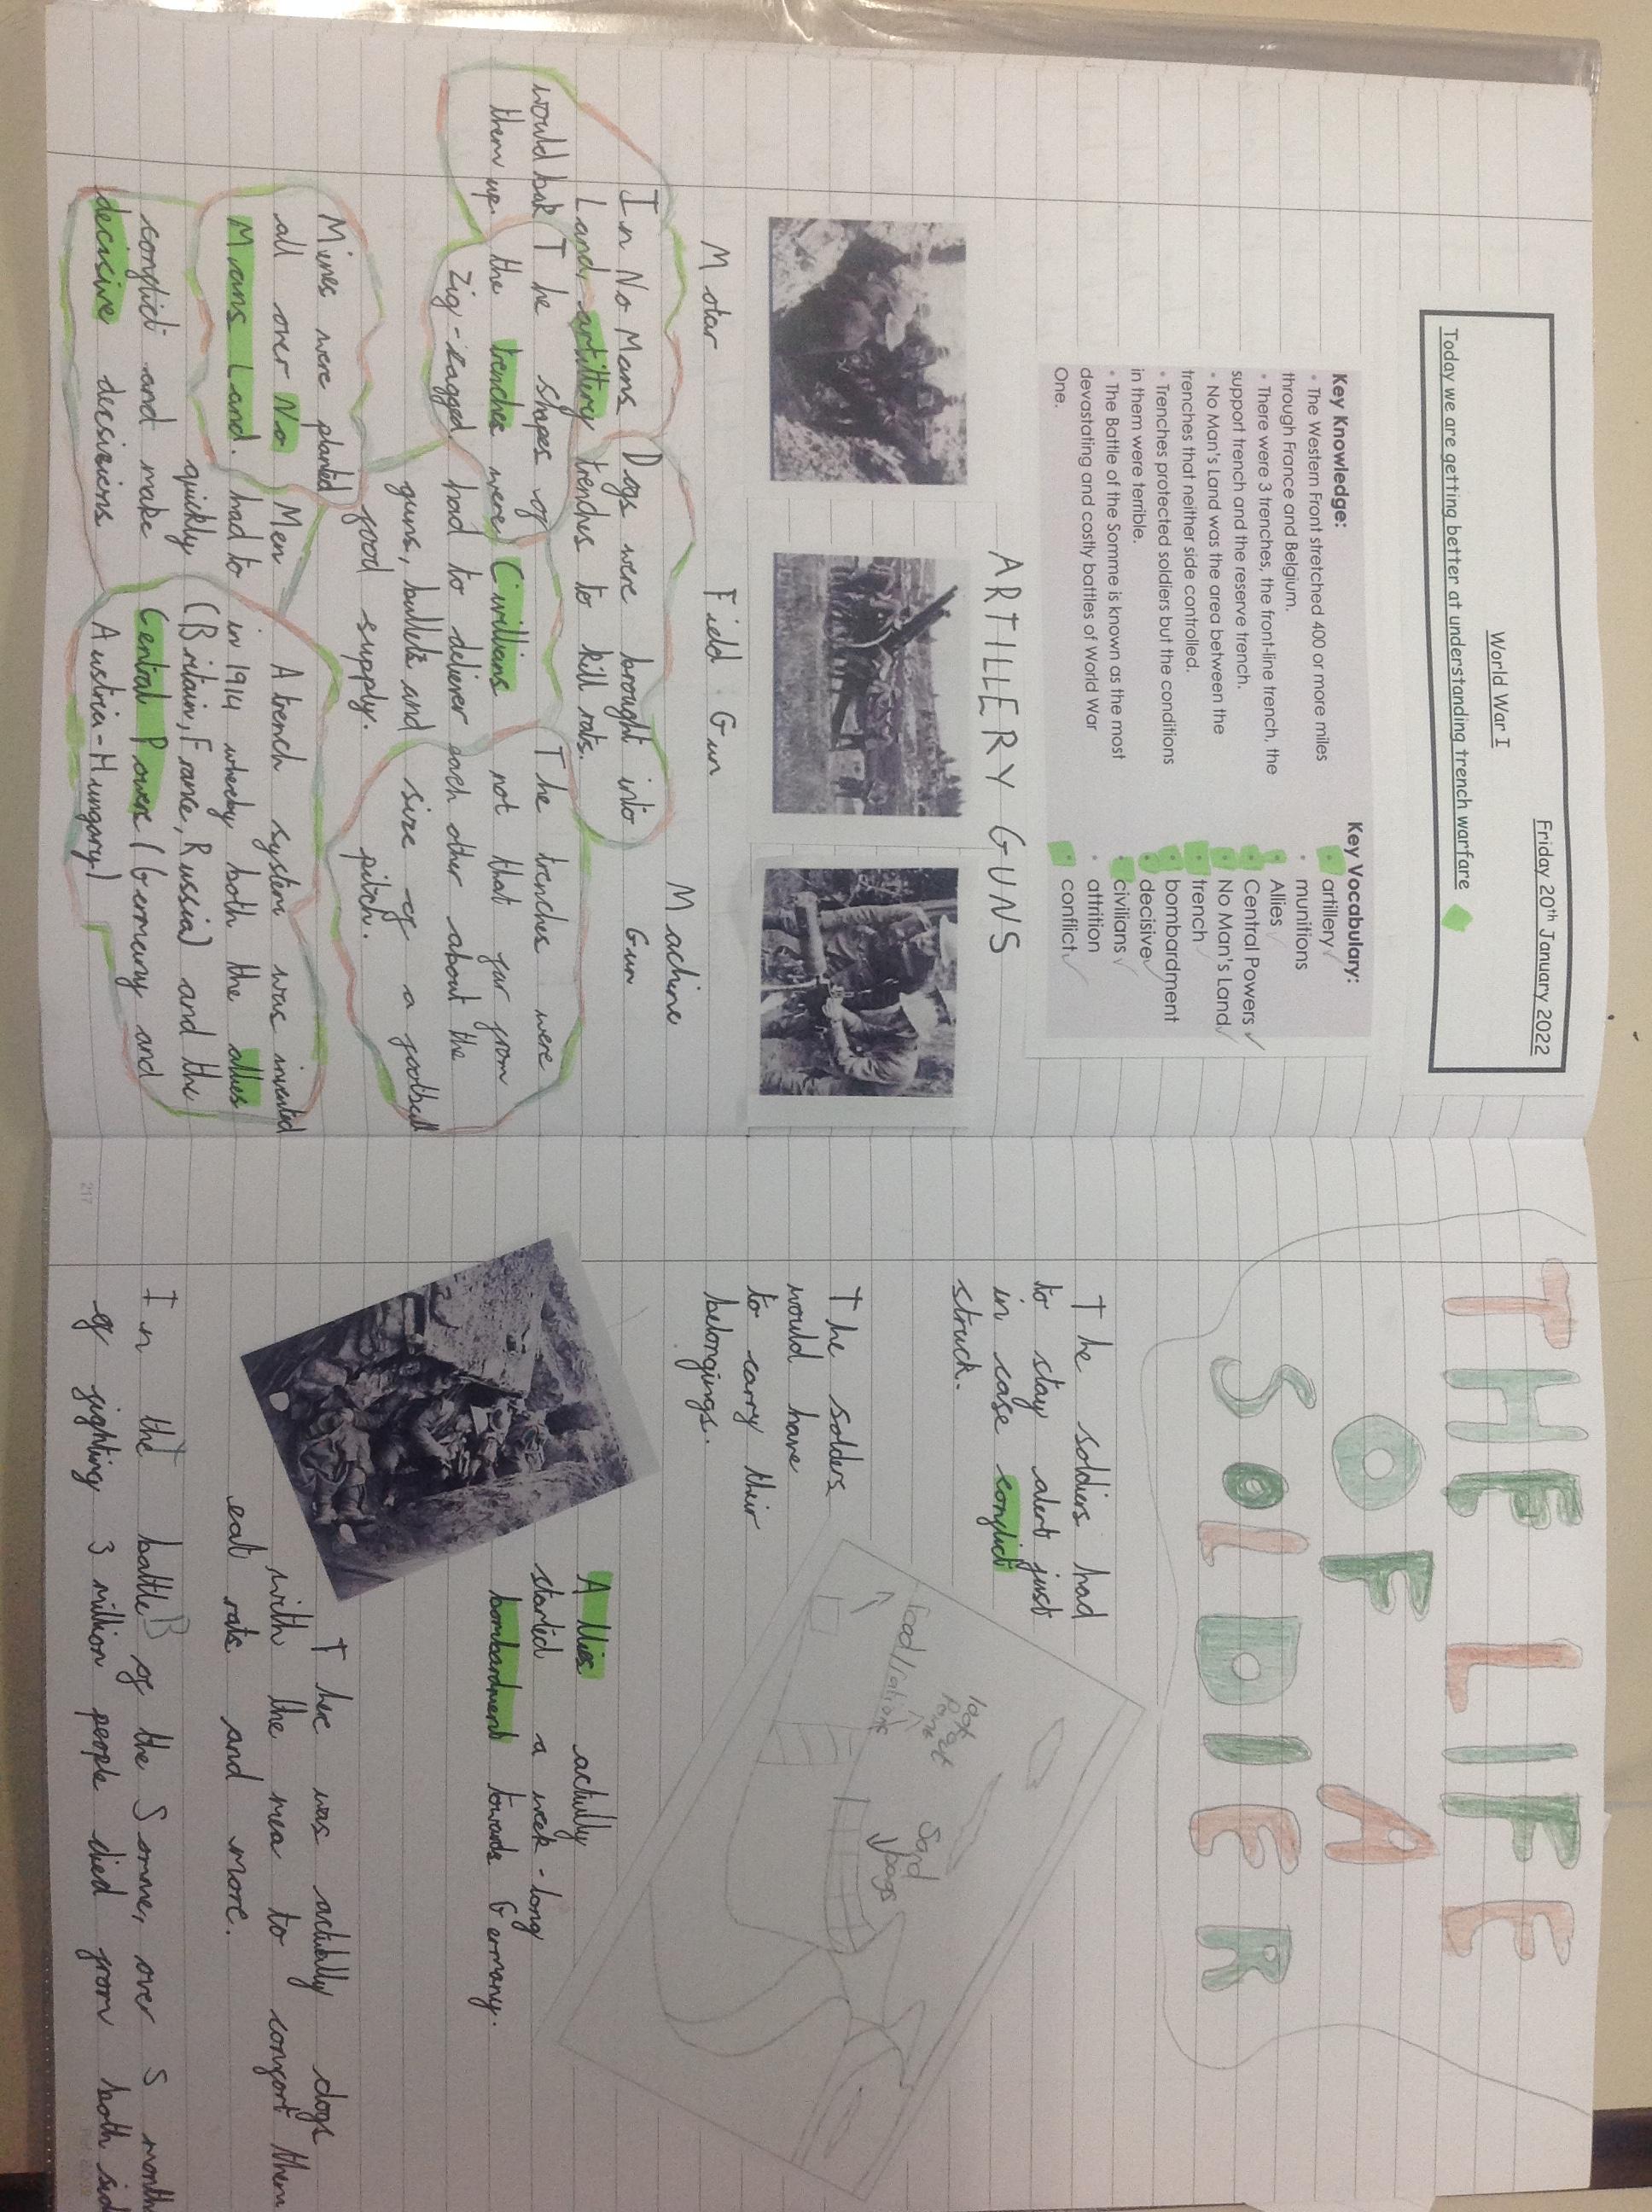 Friday 20th January 2022
World War I
Today we are getting better at understanding trench warfare
Key Knowledge:
• The Western Front stretched 400 or more miles
through France and Belgium.
• There were 3 trenches, the front-line trench, the
support trench and the reserve trench.
• No Man's Land was the area between the
trenches that neither side controlled.
• Trenches protected soldiers but the conditions
in them were terrible.
• The Battle of the Somme is known as the most
devastating and costly battles of World War
One.
Key Vocabulary:
• artillery
• munitions
• Allies
• Central Powers
• No Man's Land
• trench
• bombardment
• decisive
• civilians
• attrition
• conflict
ARTILLERY GUNS
Motar
Field Gun
Machine
Gun
In No Mans
Land, artillery
would bak
them up.
Dogs were brought into
trenches to kill rats.
The shapes of
the trenches were
Zig-zagged.
Civillians
had to deliver
guns, bullets and
food supply.
The trenches were
not that far from
each other about the
size of a football
pitch.
Mines were planted
all over No
Mans Land.
Men
had to
quickly
conflict and make
decisive decisions
A trench system was invented
in 1914 wheeby both the allies
(Britain, France, Russia) and the
Central Powers (Germeny and
Austria-Hungary)
217
THE LIFE
OF A
SOLDIER
The soldiers had
to stay alert just
in case conflict
struck.
The solders
would have
to carry their
belongings.
food/rations
look
out
Sand
bags
Allies actully
started a week-long
bombardment towards Germany.
Ther was actually dogs
with the mea to confort them
eat rats and more.
In the battle B of the Somme, over 5 month
of fighting 3 million people died from both sid